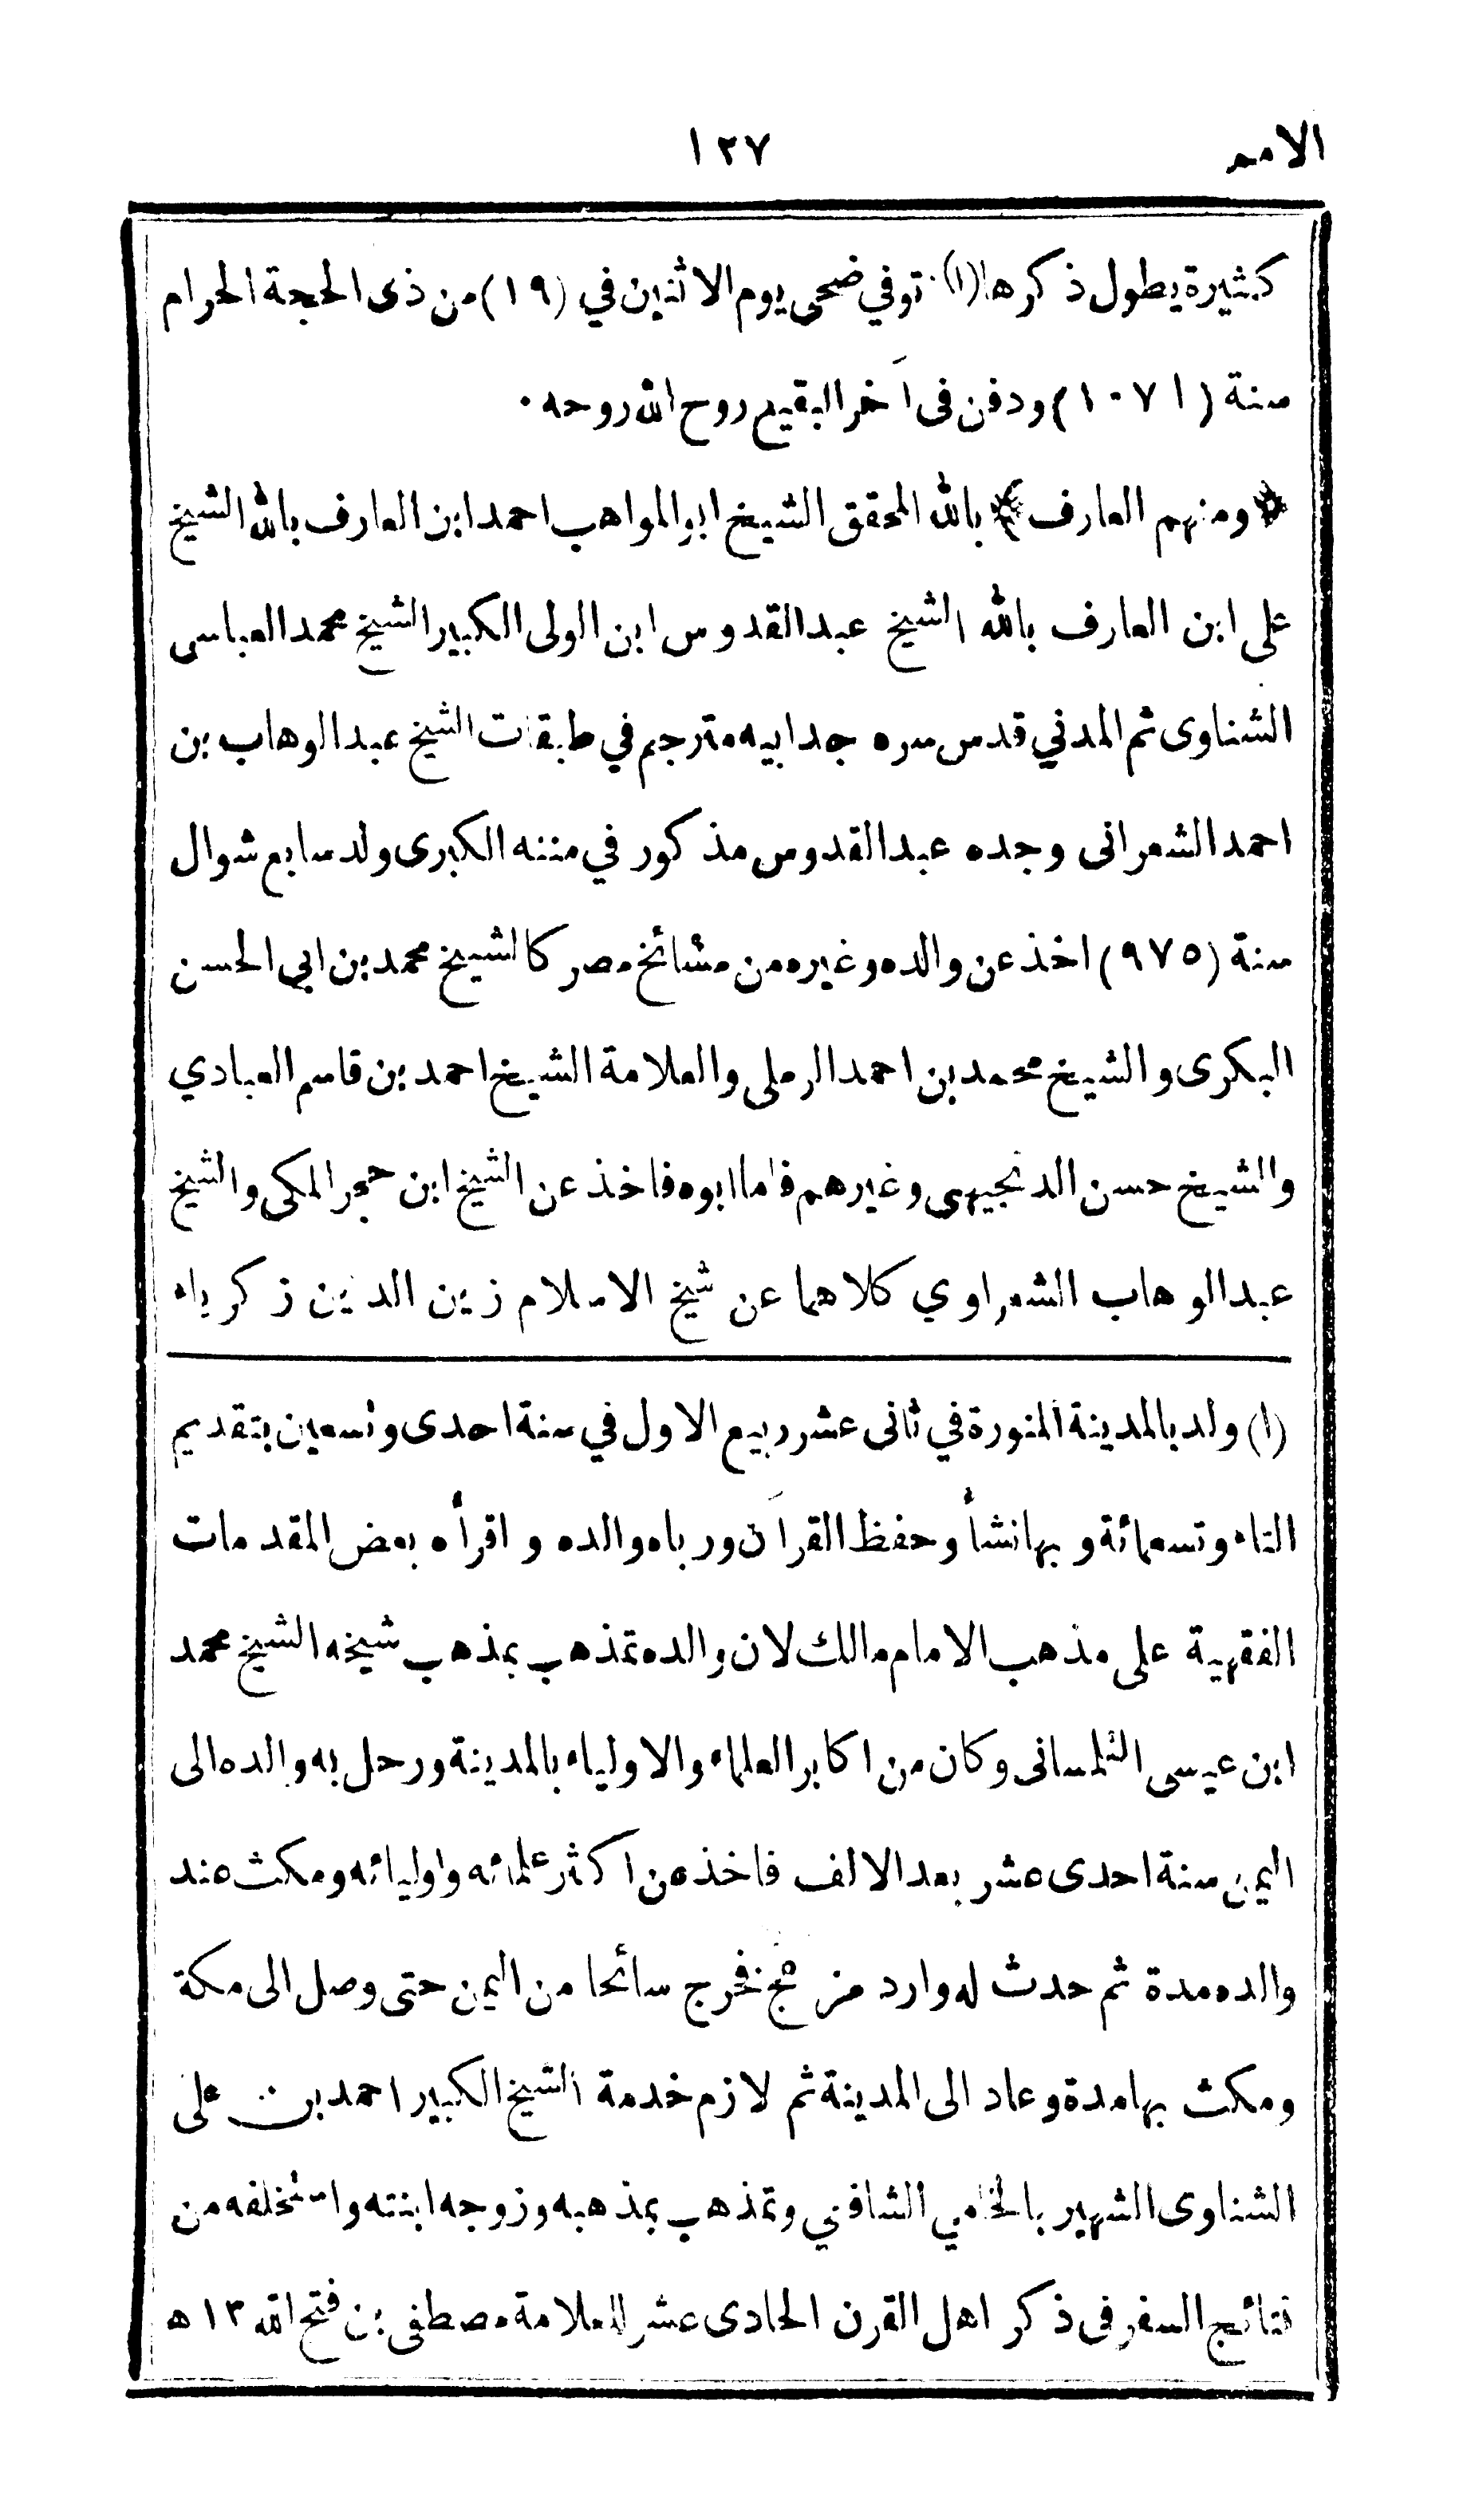 الامم ١٢٧
كثيرة يطول ذكرها (١) توفي ضحى يوم الاثنين في (١٩) من ذى الحجة الحرام
سنة (١٠٧١) ودفن فى آخر البقيع روح الله روحه ٠
﴿ ومنهم العارف ﴾ بالله المحقق الشيخ ابو المواهب احمد ابن العارف بالله الشيخ
على ابن العارف بالله الشيخ عبد القدوس ابن الولى الكبير الشيخ محمد العباسى
الشناوى ثم المدني قدس سره جد ابيه مترجم في طبقات الشيخ عبد الوهاب بن
احمد الشعرانى وجده عبد القدوس مذكور في مننه الكبرى ولد سابع شوال
سنة (٩٧٥) اخذ عن والده وغيره من مشائخ مصر كالشيخ محمد بن ابي الحسن
البكرى والشيخ محمد بن احمد الرملى والعلامة الشيخ احمد بن قاسم العبادي
والشيخ حسن الدنجيهى وغيرهم فاما ابوه فاخذ عن الشيخ ابن حجر المكى والشيخ
عبد الوهاب الشعراوي كلاهما عن شيخ الاسلام زين الدين زكرياء
(١) ولد بالمدينة المنورة في ثانى عشر ربيع الاول في سنة احدى وتسعين بتقديم
التاء وتسعمائة وبها نشأ وحفظ القرآن ورباه والده واقرأه بعض المقدمات
الفقهية على مذهب الامام مالك لان والده تمذهب بمذهب شيخه الشيخ محمد
ابن عيسى التلمسانى وكان من اكابر العلماء والاولياء بالمدينة ورحل به والده الى
اليمن سنة احدى عشر بعد الالف فاخذ عن اكثر علمائه واوليائه ومكث عند
والده مدة ثم حدث له وارد مزعج فخرج سائحا من اليمن حتى وصل الى مكة
ومكث بها مدة وعاد الى المدينة ثم لازم خدمة الشيخ الكبير احمد بن على
الشناوى الشهير بالخامي الشافعي وتمذهب بمذهبه وزوجه ابنته واستخلفه من
نتائج السفر فى ذكر اهل القرن الحادى عشر للعلامة مصطفى بن فتح الله ١٢ ه